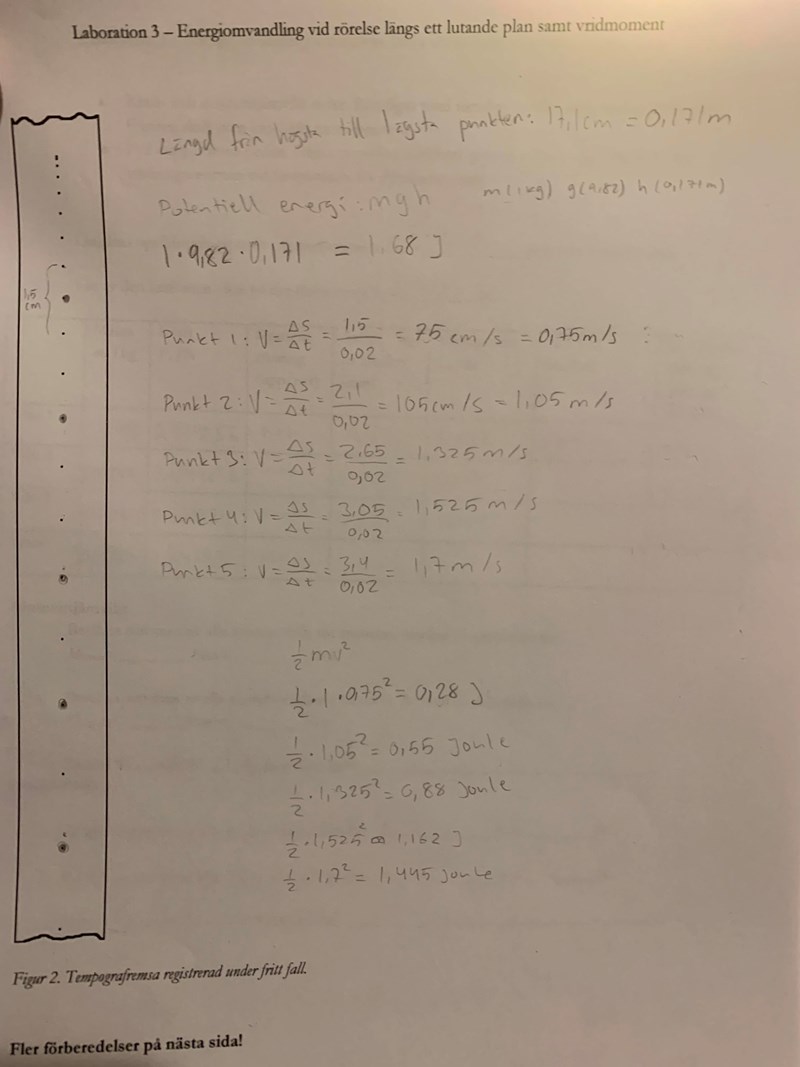 Laboration 3 – Energiomvandling vid rörelse längs ett lutande plan samt vridmoment
Längd från högsta till lägsta punkten: 17,1cm = 0,171m
Potentiell energi: mgh m(1kg) g(9,82) h(0,171m)
1·9,82·0,171 = 1.68 J
1,5 cm
Punkt 1: V = Δs/Δt = 1,5/0,02 = 75 cm/s = 0,75m/s
Punkt 2: V = Δs/Δt = 2,1/0,02 = 105cm/s = 1,05 m/s
Punkt 3: V = Δs/Δt = 2,65/0,02 = 1,325 m/s
Punkt 4: V = Δs/Δt = 3,05/0,02 = 1,525 m/s
Punkt 5: V = Δs/Δt = 3,4/0,02 = 1,7 m/s
1/2 mv²
1/2 · 1 · 0,75² = 0,28 J
1/2 · 1,05² = 0,55 Joule
1/2 · 1,325² = 0,88 Joule
1/2 · 1,525² ≈ 1,162 J
1/2 · 1,7² = 1,445 Joule
Figur 2. Tempografremsa registrerad under fritt fall.
Fler förberedelser på nästa sida!